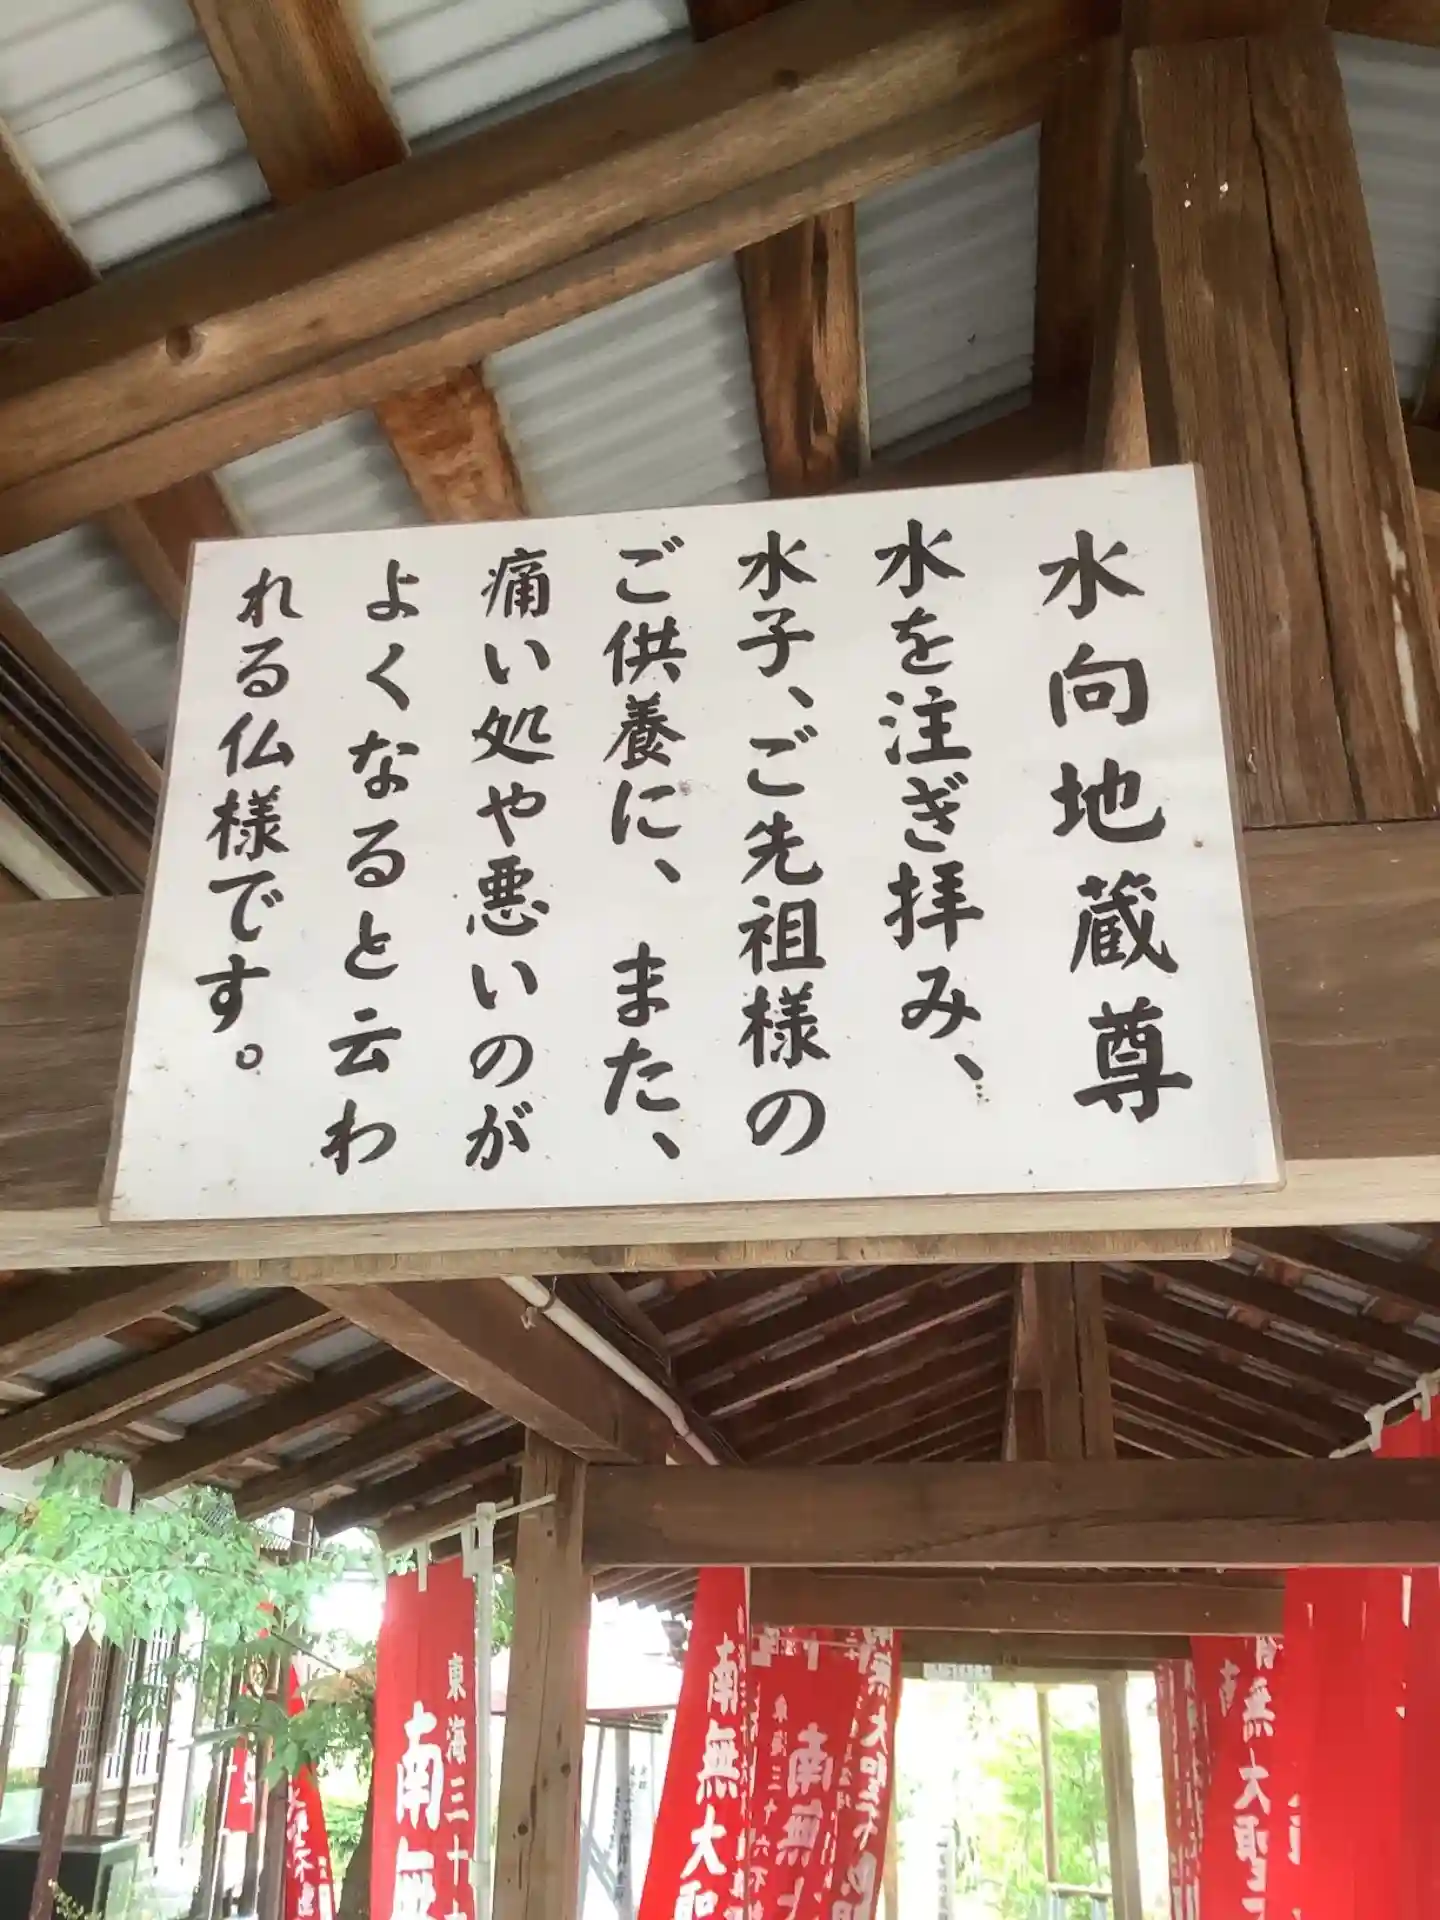 水向地蔵尊
水を注ぎ拝み、
水子、ご先祖様の
ご供養に、また、
痛い処や悪いのが
よくなると云わ
れる仏様です。
東海三十
南無
南無大聖
東海三十六不
南無
無大聖不動
無大聖
南